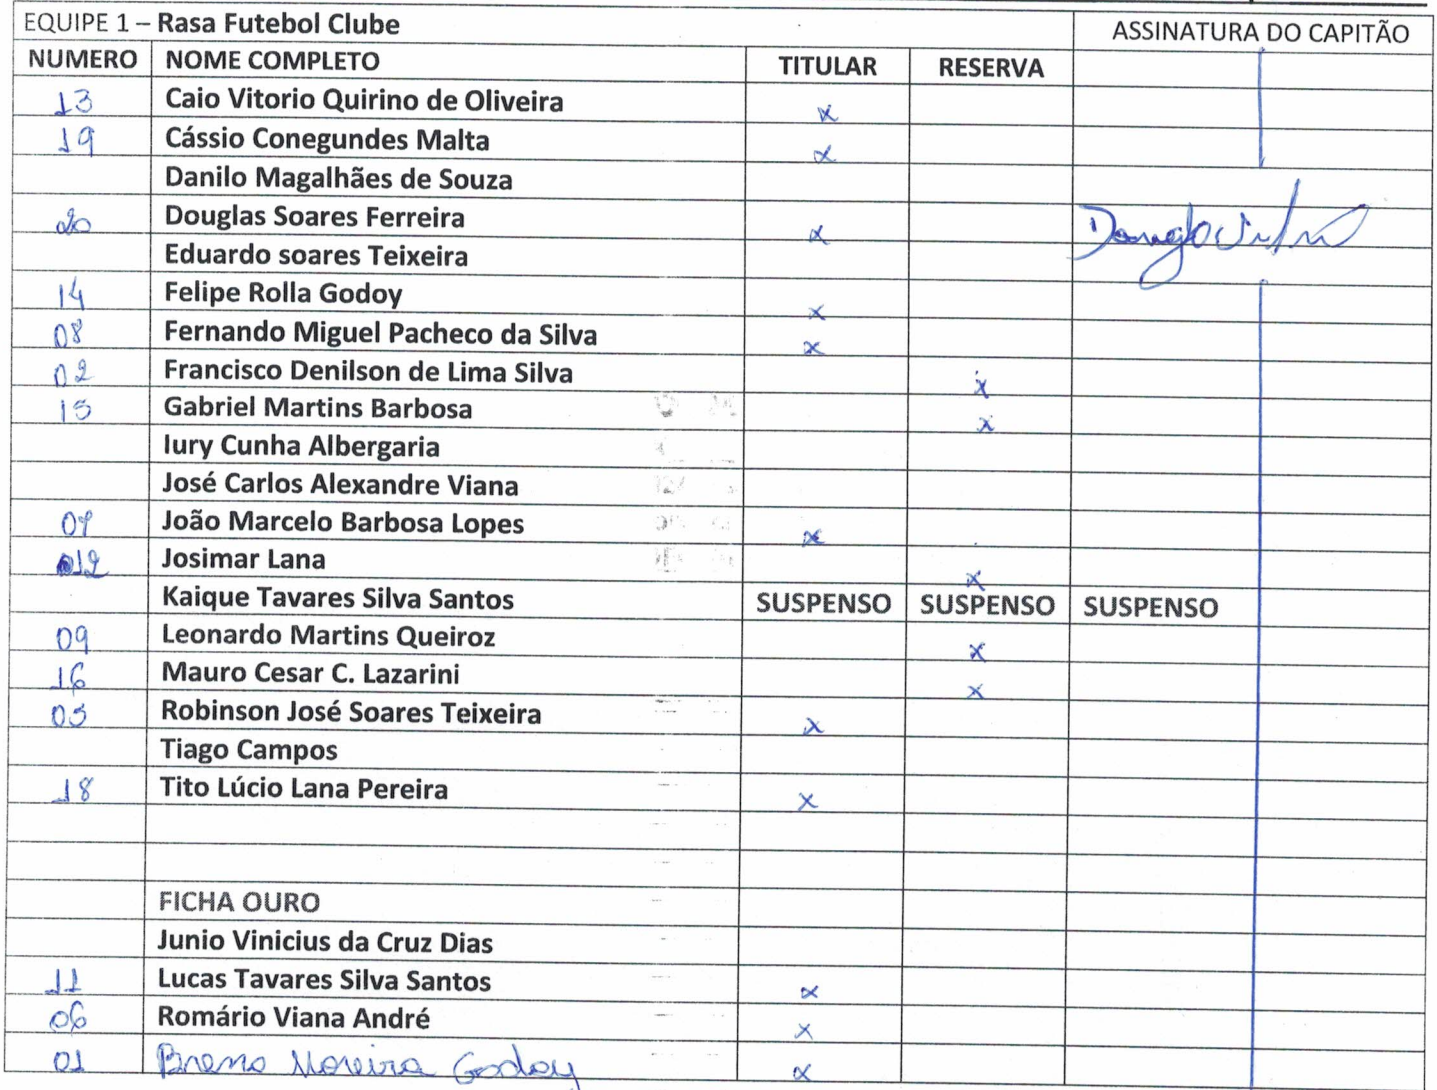 EQUIPE 1 – Rasa Futebol Clube ASSINATURA DO CAPITÃO
NUMERO NOME COMPLETO TITULAR RESERVA
13 Caio Vitorio Quirino de Oliveira x
19 Cássio Conegundes Malta x
Danilo Magalhães de Souza
20 Douglas Soares Ferreira x
Eduardo soares Teixeira
14 Felipe Rolla Godoy x
08 Fernando Miguel Pacheco da Silva x
02 Francisco Denilson de Lima Silva x
15 Gabriel Martins Barbosa x
Iury Cunha Albergaria
José Carlos Alexandre Viana
07 João Marcelo Barbosa Lopes x
12 Josimar Lana x
Kaique Tavares Silva Santos SUSPENSO SUSPENSO SUSPENSO
09 Leonardo Martins Queiroz x
16 Mauro Cesar C. Lazarini x
05 Robinson José Soares Teixeira x
Tiago Campos
18 Tito Lúcio Lana Pereira x
FICHA OURO
Junio Vinicius da Cruz Dias
11 Lucas Tavares Silva Santos x
06 Romário Viana André x
01 Breno Moreira Godoy x